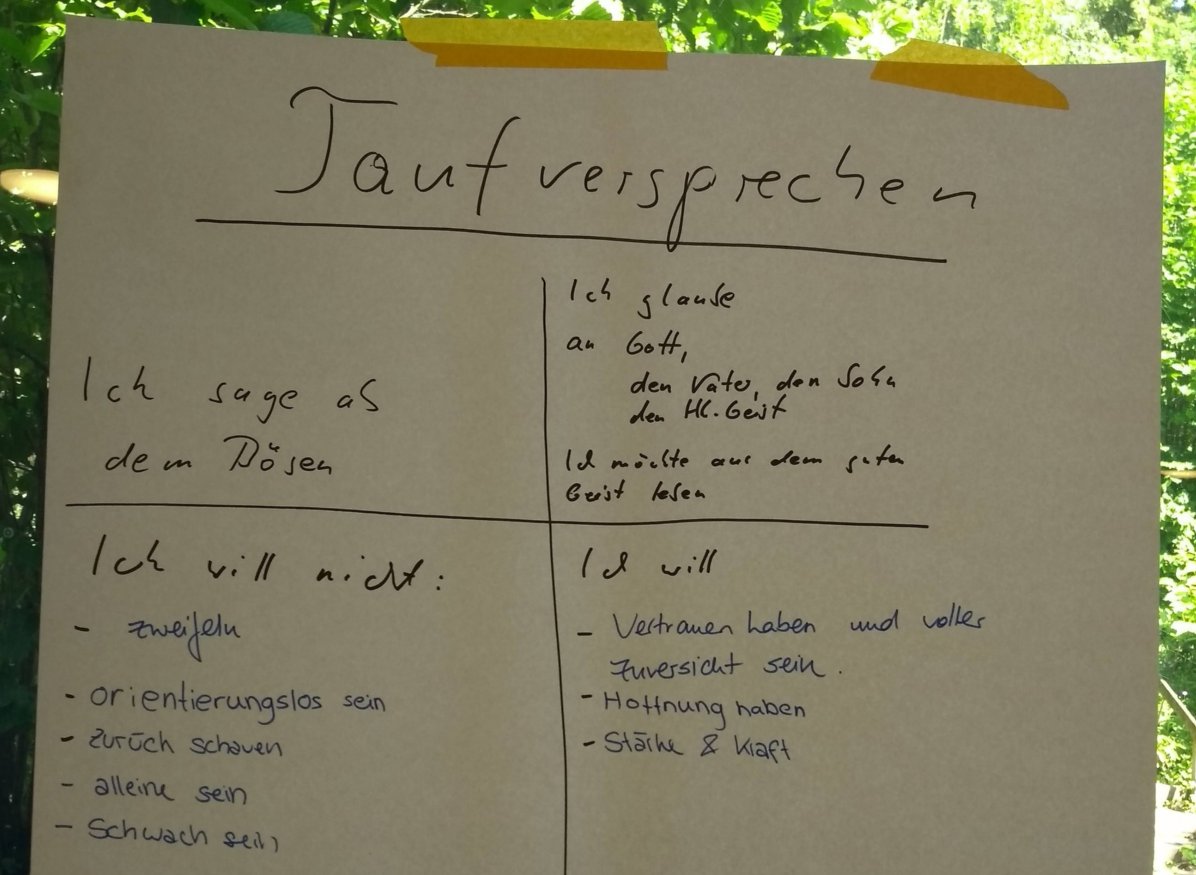 Taufversprechen
Ich sage ab
dem Bösen
Ich glaube
an Gott,
den Vater, den Sohn
den Hl. Geist
Ich möchte aus dem guten
Geist leben
Ich will nicht:
- zweifeln
- orientierungslos sein
- zurück schauen
- alleine sein
- Schwach sein
Ich will
- Vertrauen haben und voller
Zuversicht sein.
- Hoffnung haben
- Stärke & Kraft